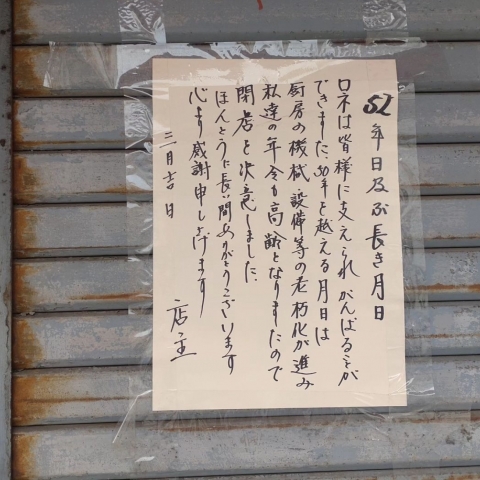 52年日及ぶ長き月日
ロネは皆様に支えられがんばることが
できました、50年を越える月日は
厨房の機械設備等の老朽化が進み
私達の年令も高齢となりましたので
閉店を決意しました、
ほんとうに長い間ありがとうございます
心より感謝申し上げます
三月吉日
店主